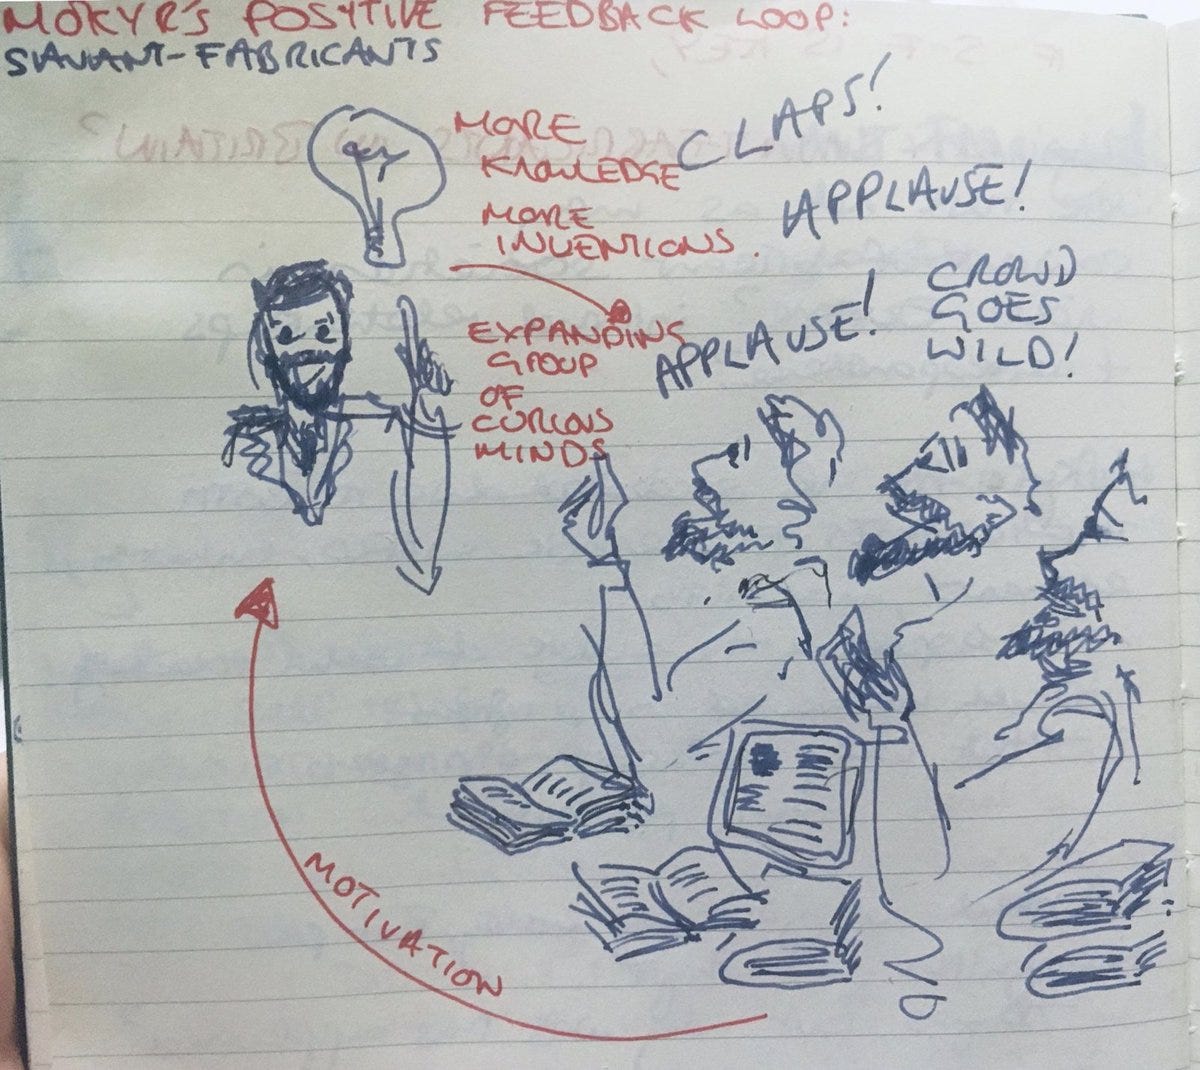 MOKYR'S POSYTIVE FEEDBACK LOOP:
SAVANT-FABRICANTS
MORE
KNOWLEDGE
MORE
INVENTIONS.
CLAPS!
APPLAUSE!
APPLAUSE!
CROWD
GOES
WILD!
EXPANDING
GROUP
OF
CURIOUS
MINDS
MOTIVATION